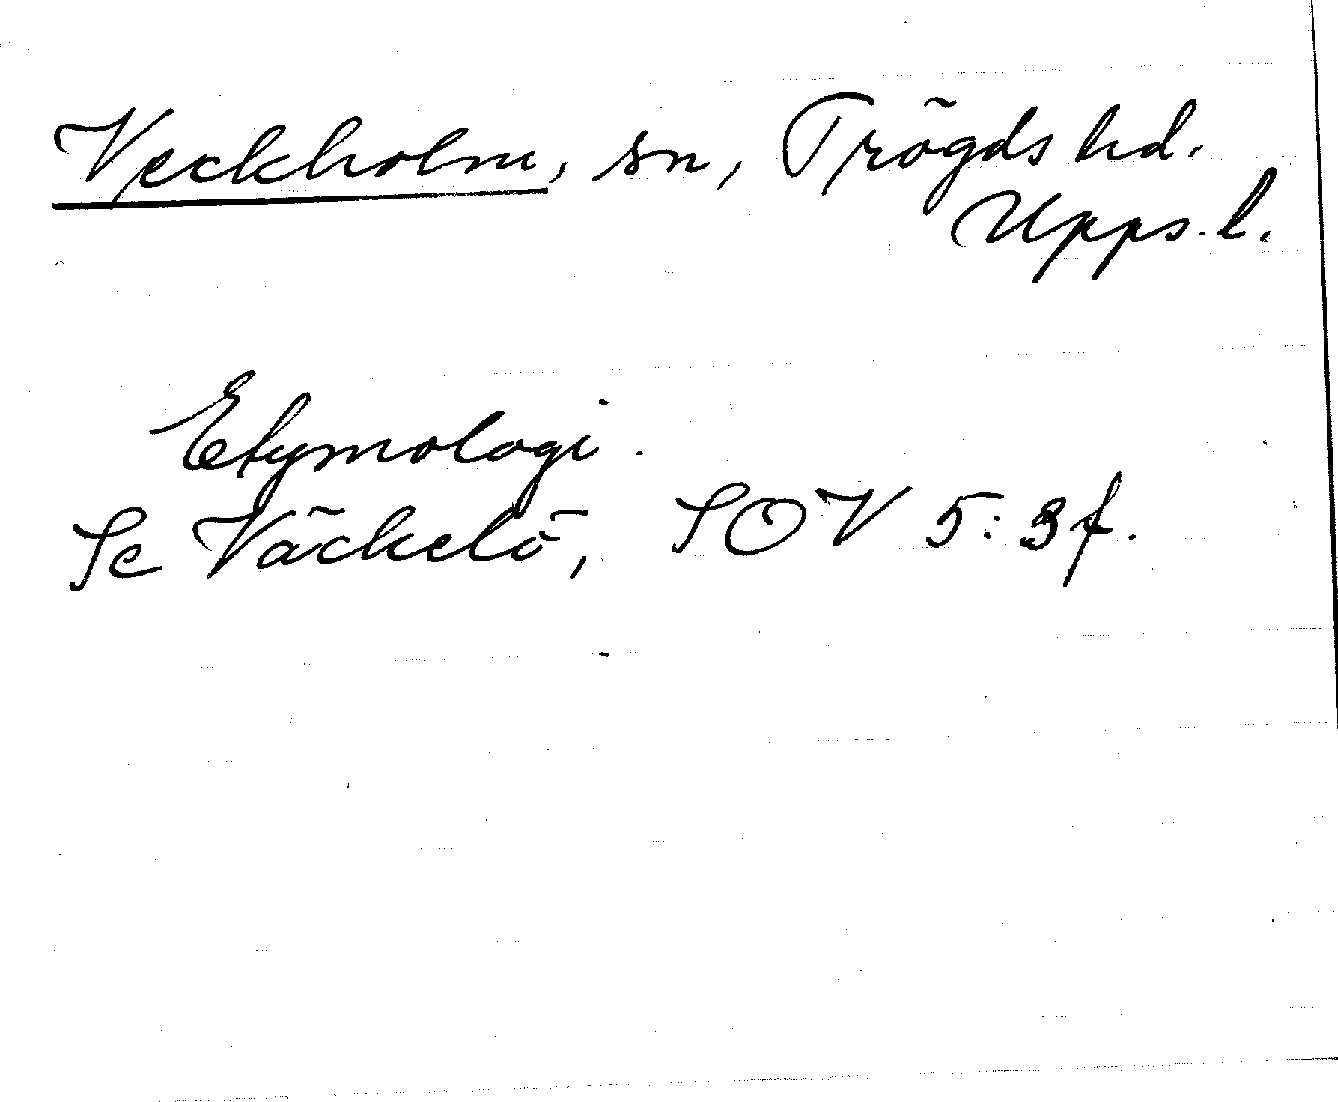 Veckholm, sn, Trögds hd.
Upps. l.
Etymologi.
Se Väckelö, SOV 5: 3 f.